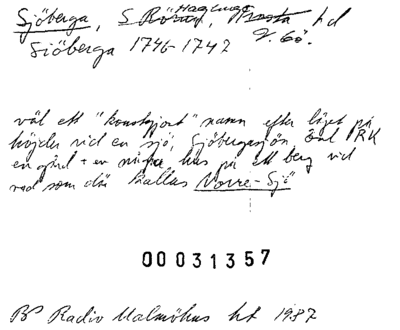 Sjöberga, S Rörum, Hagenga, Frosta hd
Sjöberga 1746-1742 V. Gö.
väl ett "konstgjort" namn efter läget på
höjder vid en sjö, Sjöbergasjön, enl RK
en gård + en mindre hus på ett berg vid
vad som där kallas Norre-Sjö"
00031357
BP Radio Malmöhus ht 1987